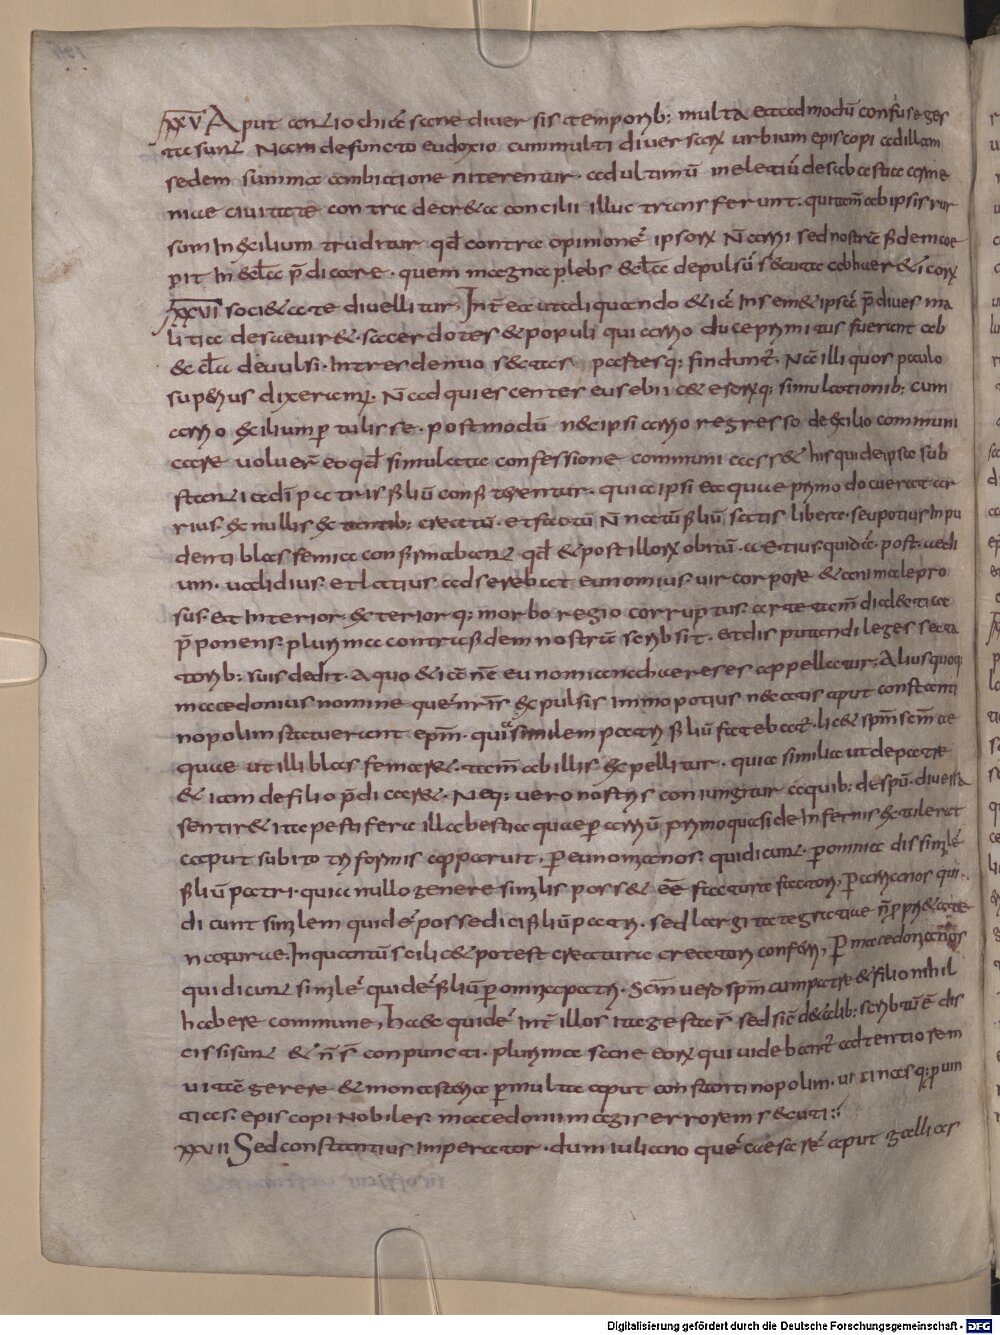 XXV Aput antiochiā sane diuersis temporib; multa et admodū confuse ges
ta sunt. Nam defuncto eudoxio cum multi diuersarꝝ urbium episcopi ad illam
sedem summa ambitione niterentur. ad ultimū meletiū de sebastia arme
niae ciuitate contra decr&a concilii illuc transferunt. qui tam̄ ab ipsis rur
sum in exilium truditur qd̄ contra opinionē ipsorꝝ N̄ arrii sed nostrā fidem coe
pit in &cl̄a p̄dicare. quem magna plebs &cl̄a depulsū secuta ab her&icorꝝ
XXVI soci&ate diuellitur, Int̄ ea ut aliquando &iā in sem& ipsā p̄diues ma
litia desaeuir&. sacerdotes & populi qui arrio duce primitus fuerant ab
&cl̄a deuulsi. in tres denuo sectas partesq; findunt̄. Nā illi quos paulo
superius dixeram. N̄ adquiescenter eusebii c&erorꝝq; simulationib; cum
arrio exilium ptulisse. postmodū nec ipsi arrio regresso de exilio communi
care voluer̄ eo qd̄ simulata confessione communicass& his qui de ipsa sub
stantia dī patris filiū confiterentur. quia ipsi ea quae primo docuerat ar
rius. ex nullis extantib; creatū. et factū N̄ natū filiū satis libera. seu potius inpu
denti blasfemia confirmabant qd̄ & post illorꝝ obitū. aetius quidā. post aeti
um. ualidius et latius adserebat eunomius uir corpore & anima lepro
sus. et interior. exteriorq; morbo regio corruptus. arte tam̄ dialectica
p̄ponens. plurima contra fidem nostrā scribsit. et disputandi leges secta
torib; suis dedit. A quo & iā nc̄ eunomiana haereses appellatur. Alius quoq;
macedonius nomine quē nr̄is expulsis immo potius necatis aput constanti
nopolim statuerant epm̄. qui similem patri filiū fatebat̄. lic& spm̄ scm̄ ae
quae ut illi blasfemar&. tam̄ ab illis expellitur. quia similia ut de patre
& iam de filio p̄dicar&. Neq; uero nostris coniungitur a quib; de spū. diuersa
sentir& ita pestifera illa bestia quae p arriū primo quasi de infernis extulerat
caput subito triformis apparuit. P eunomianos. qui dicunt. p omnia dissimilē
filiū patri. quia nullo genere similis poss& eē factura factori, P arrianos qui.
dicunt similem quidē posse dici filiū patri. sed largitate gratiae n̄ p&ate
naturae. In quantū scilic& potest creatura creatori conferri, P macedonianos
qui dicunt similē quidē filiū p omnia patri. scm̄ uero spm̄ cum patre & filio nihil
habere commune, haec quidē int̄ illos ita gesta s̄ sed sic̄ de talib; scribtū ē dis
cissi sunt & n̄ s̄ conpuncti. plurima sane eorꝝ qui uidebant̄ adtentiorem
uitā gerere & monasteria p multa aput constantinopolim. uicinasq; ptin
tias. episcopi nobiles. macedonii magis errorem secuti:
XXVII Sed constantius imperator. dum iuliano quē caesarē aput gallias
Digitalisierung gefördert durch die Deutsche Forschungsgemeinschaft - DFG